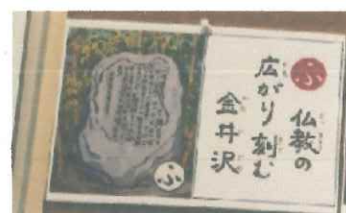 ふ
仏教の
広がり刻む
金井沢
ふ